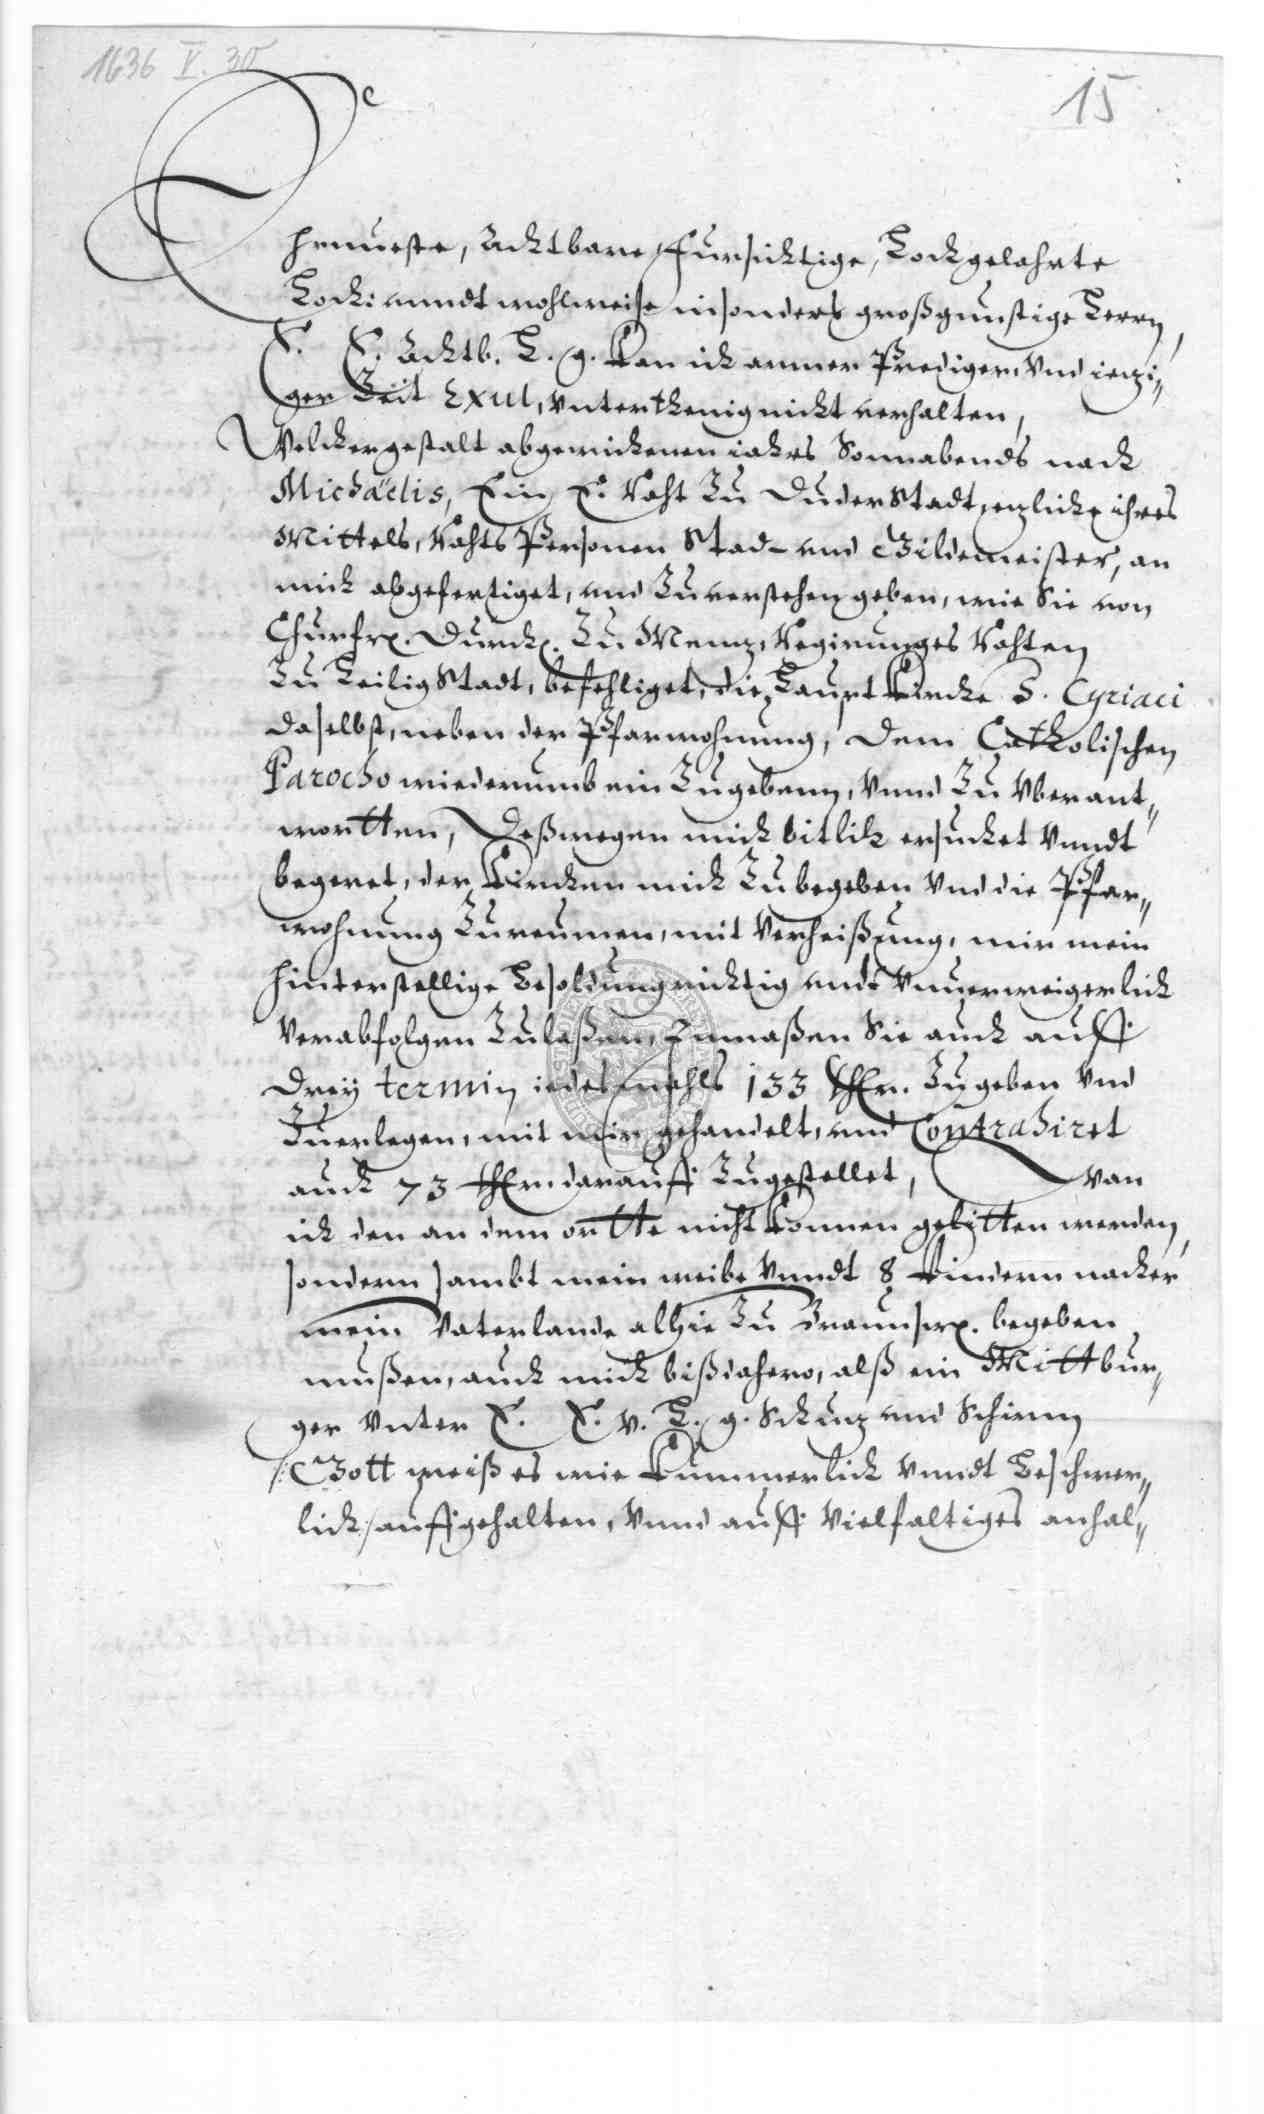 1636 V. 30
15
Ehrnueste, Achtbare, Fursichtige, Hochgelahrte
Hoch: vnndt wohlweise insonders großgunstige Herrn,
E. E. Achtb. H. g. kan ich armer Prediger, vnd ietzi„
ger Zeit Exul, vnterthenig nicht verhalten,
Welcher gestalt abgewichenen iahrs Sonnabends nach
Michaëlis, Ein E. Raht Zu Duderstadt, etzliche ihres
Mittels, Rahts Personen Stad- vnd Gildemeister, an
mich abgefertiget, vnd Zuverstehen geben, wie Sie von
Churfr. Durchl. Zu Meintz, Regirunges Rahten
Zu Heiligstadt, befehliget, die Haupt Kirche S. Cyriaci
daselbst, neben der Pfarwohnung, dem Catholischen
Parocho wiederumb ein Zugebenn, Vnnd Zu Vberant„
wortten, Deßwegen mich bitlich ersuchet Vnndt
begeret, der Kirchen mich Zubegeben Vnd die Pfar„
wohnung Zureumen, mit Verheißung, mir mein
hinterstellige Besoldung richtig vndt Vnuerweigerlich
Verabfolgen Zulaßen, Inmaßen Sie auch auff
Dreÿ termin iedesmahls 133 thlr. Zugeben Vnd
Zuerlegen, mit mir gehandelt, vnd Contrahiret
auch 73 thlr. darauff Zugestellet, Wan
ich den an dem ortte nicht konnen gelitten werden,
sondern sambt mein weibe Vnndt 8 Kindern nacher
mein Vaterlande alhie Zu Braunschw. begeben
mußen, auch mich bißdahero, alß ein Mittbur„
ger Vnter E. E. v. H. g. Schutz vnd Schirm
/: Gott weiß es wie Kummerlich Vnndt Beschwer„
lich :/ auffgehalten, Vnnd auff Vielfaltiges anhal„